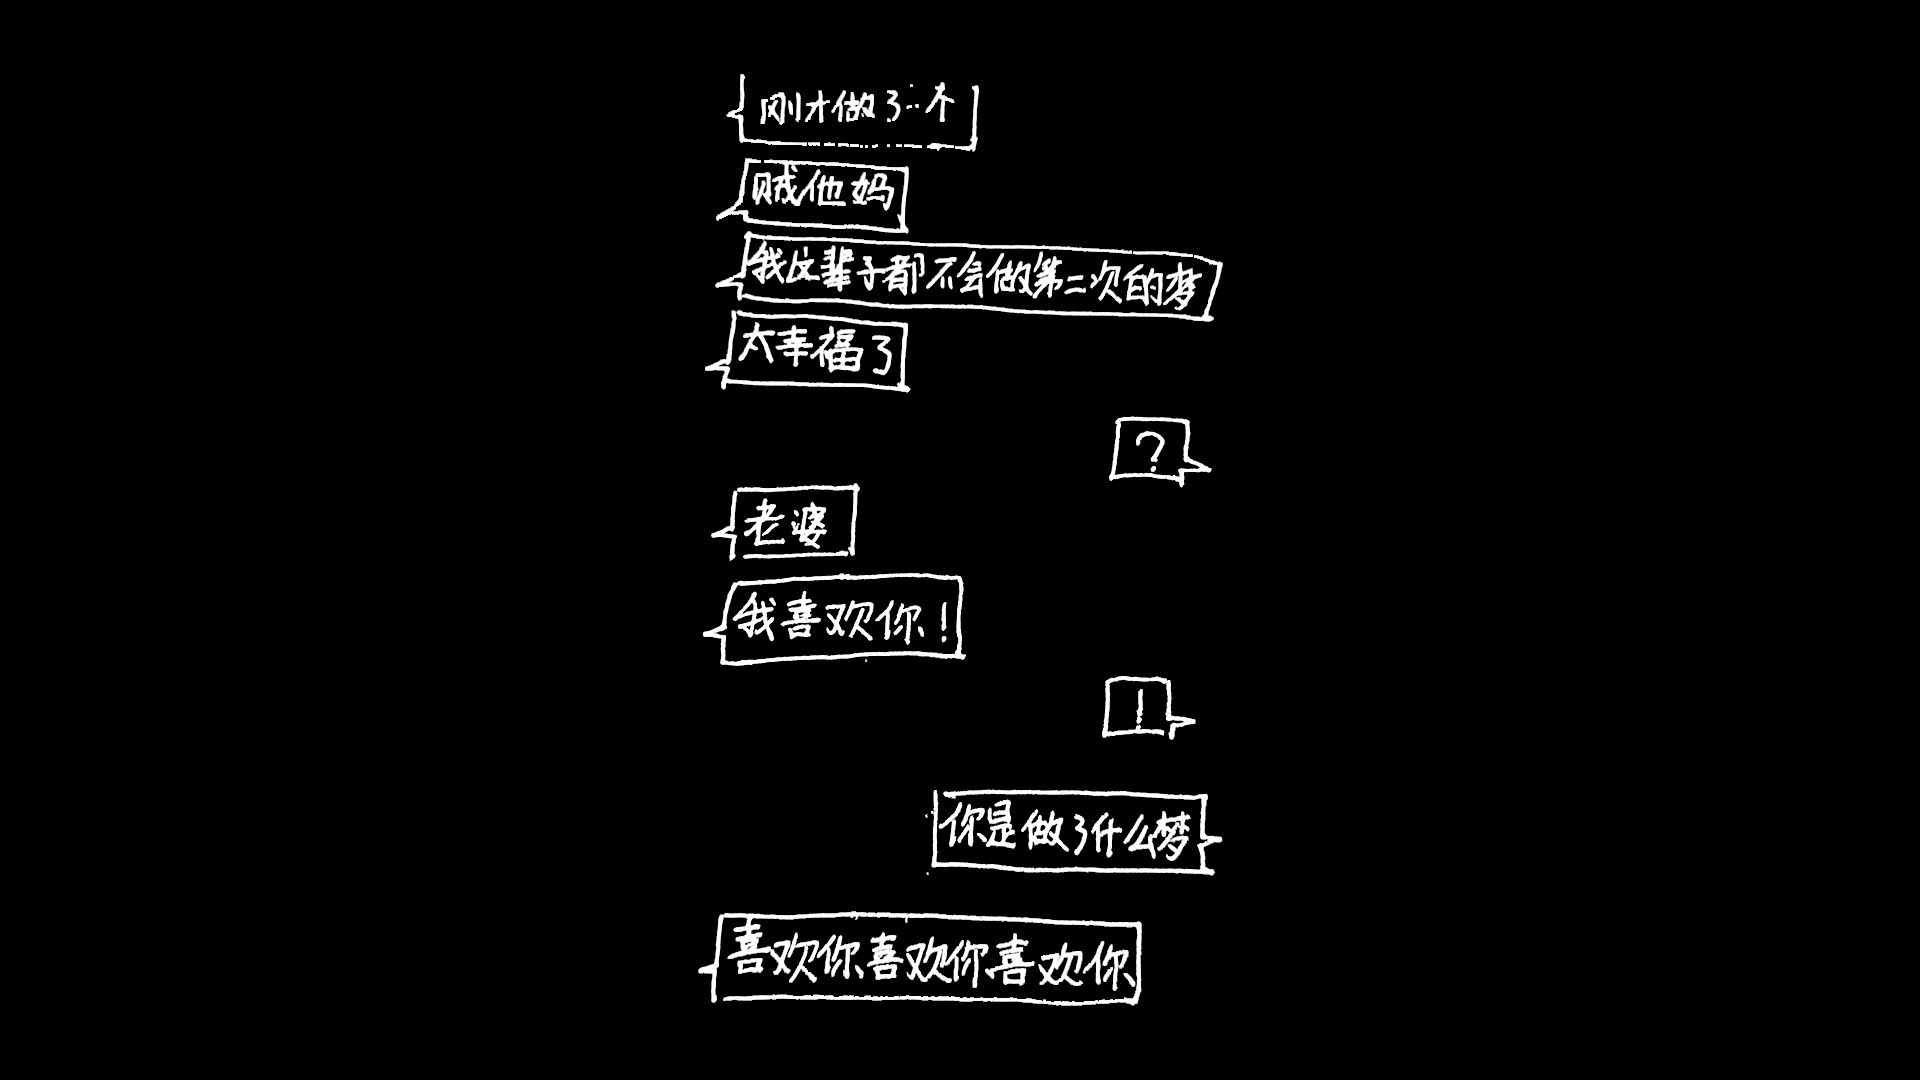 刚才做了一个
贼他妈
我这辈子都不会做第二次的梦
太幸福了
?
老婆
我喜欢你!
!
你是做了什么梦
喜欢你喜欢你喜欢你